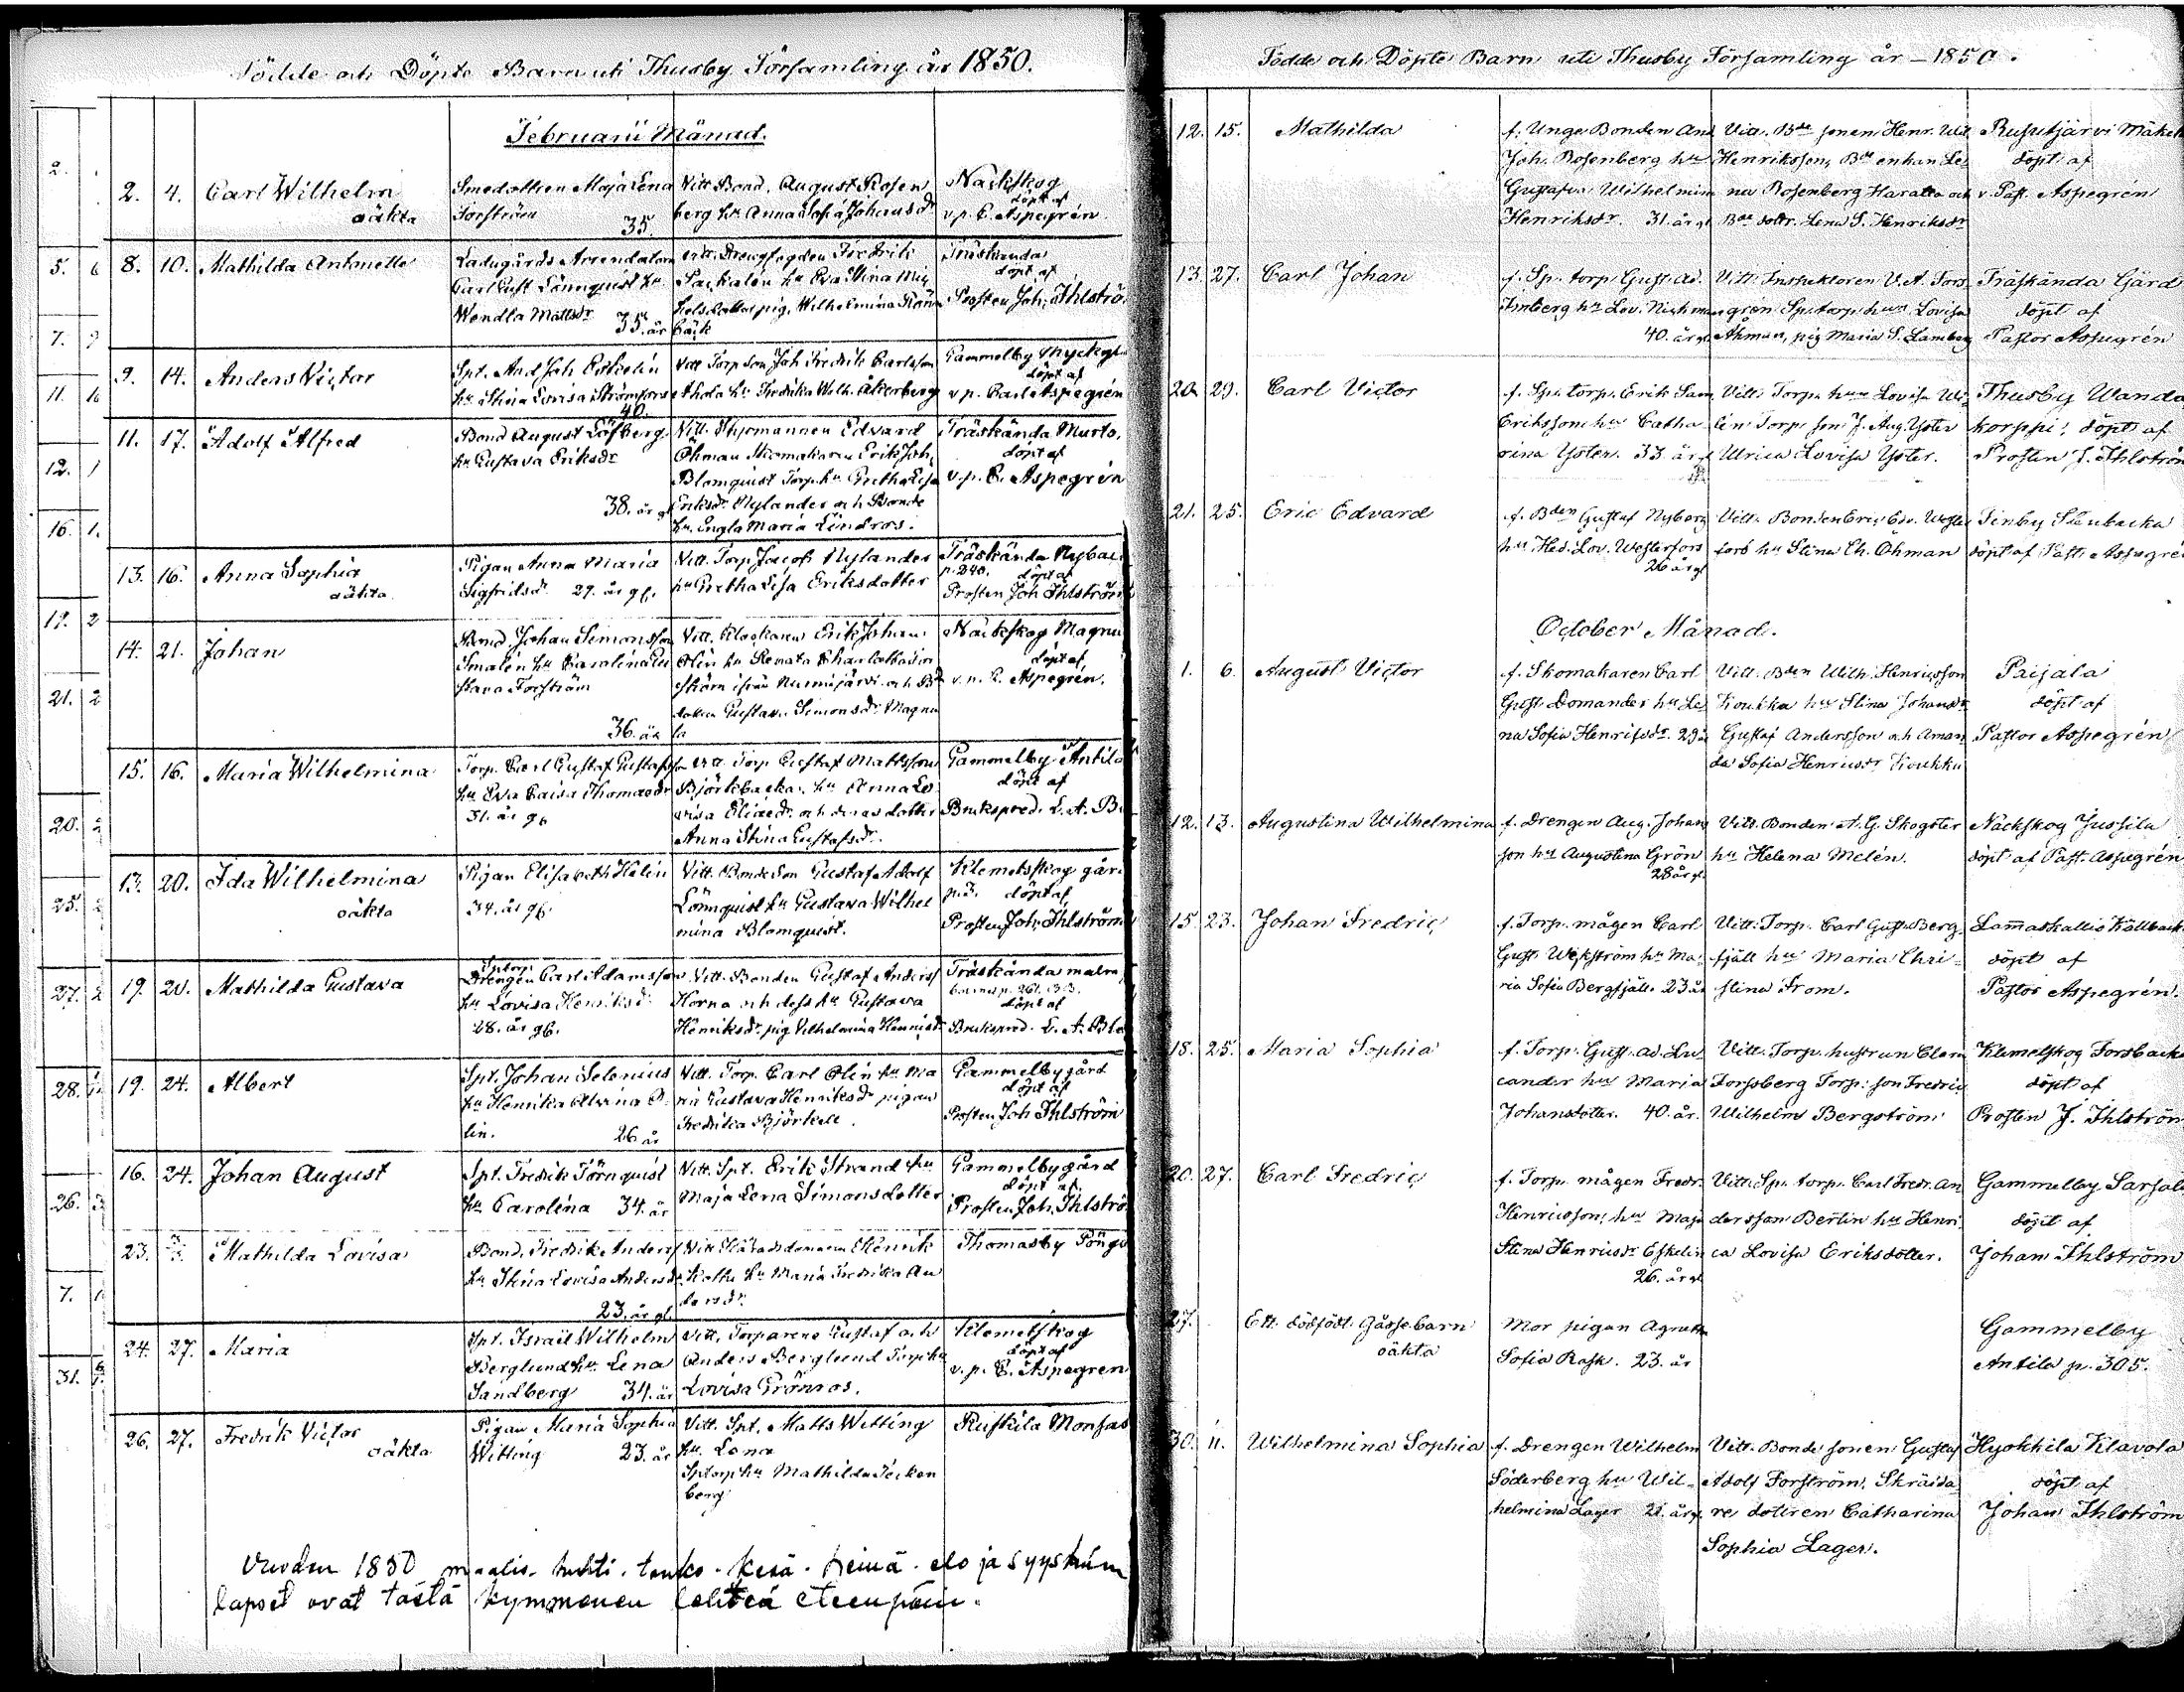 Födde och Döpte Barn uti Thusby Församling år 1850.
Februarii Månad.
2. 4. Carl Wilhelm
oäkta
Smedottren Maja Lena
Forström
35.
Vitt Bond. August Rosen
berg hu Anna Sofia Johansdr
Nackskog
döpt af
v.p. C. Aspegrén
8. 10. Mathilda Antonette
Ladugårds Arrendatorn
Carl Gust Lönnquist hu
Wendla Mattsdr 35. år
vitt. Drengfogden Fredrik
Packalén hu Eva Stina Mic
helsdotter pig. Wilhelmina Rönn
bäck
Träskända
döpt af
Prosten Joh. Ihlströ
9. 14. Anders Victor
Spt. And Joh Eskolin
hu Stina Lovisa Strömfors
40.
Vitt Torp Son Joh Fredrik Carlsson
Ahola hu Fredrika Wilh. Åkerberg
Gammelby Myckyl
döpt af
v p. Carl Aspegrén
11. 17. Adolf Alfred
Bond August Löfberg
hu Gustava Eriksdr
38. år gl
Vitt. Styrmannen Edvard
Öhman Skomakaren Erik Joh,
Blomquist Torp. hu Gretha Lisa
Eriksdr Nylander och Bonde
hu. Engla Maria Lindros.
Träskända Murto.
döpt af
v.p. C. Aspegrén
13. 16. Anna Sophia
oäkta
Pigan Anna Maria
Sigfridsdr 29. år gl.
Vitt. Torp Jacob Nylander
hu Gretha Lisa Eriksdotter
Träskända Nybac
p. 240. döpt af
Prosten Joh Ihlström
14. 21. Johan
Bond Johan Simonsson
Smalén hu Carolina Gu
stava Forström
36. år
Vitt. Klockaren Erik Johan
Olin hu Renata Charlotta
ifrån Nurmijärvi och Bd
dottren Gustava Simonsdr Magnu
la
Nackskog Magnu
döpt af,
v. p. C. Aspegrén.
15. 16. Maria Wilhelmina
Torp. Carl Gustaf Gustafsson
hu Eva Caisa Thomasdr
31. år gl
vitt Torp Gustaf Mattsson
Björkbacka. hu Anna Lo
visa Eliaedr. och deras dotter
Anna Stina Gustafsdr.
Gammelby Antila
döpt af
Brukspred. L. A. B
13. 20. Ida Wilhelmina
oäkta
Pigan Elisabeth Helin
34. år gl.
Vitt. Bonde Son Gustaf Adolf
Lönnquist hu Gustava Wilhel
mina Blomquist.
Klemetskog går
p. 3. döpt af,
Prosten Joh. Ihlström
19. 20. Mathilda Gustava
Sptorp
Drengen Carl Adamsson
hu Lovisa Henriksdr
28. år gl.
Vitt. Bonden Gustaf Anderss
Horna och dess hu Gustava
Henriksdr. pig Vilhelmina Henricsdr
Träskända malm
döpt af
Brukspred. L. A. Ble
19. 24. Albert
Spt. Johan Selenius
hu Henrika Alvina O
lin. 26 år
Vitt. Torp Carl Olin hu Ma
ria Gustava Henriksdr pigan
Fredrika Björkell.
Gammelby gård
döpt af
Prosten Joh Ihlström
16. 24. Johan August
Spt. Fredrik Törnquist
hu Carolina 34. år
Vitt. Spt. Erik Strand hu
Maja Lena Simonsdotter
Gammelby gård
döpt af
Prosten Joh. Ihlströ
23. 3/3. Mathilda Lovisa
Bond. Fredrik Anderss
hu Stina Lovisa Andersdr
23. år gl
Vitt Häradsdomaren Henrik
hu Maria Fredrika An
dersdr.
Thomasby Pöng
24. 27. Maria
Spt. Israel Wilhelm
Berglund hu. Lena
Sandberg 34. år
Vitt. Torparene Gustaf och
Anders Berglund Torp hu
Lovisa Grönros.
Klemetskog
döpt af
v. p. C. Aspegren
26. 27. Fredrik Victor
oäkta
Pigan Maria Sophia
Witting 23. år
Vitt. Spt. Matts Witting
hu. Lena
Sptorp hu Mathilda Tecken
berg
Ruskila Monsas
Vuoden 1850 maalis- huhti- touko- kesä- heinä- elo ja syyskuun
lapset ovat tästä kymmenen lehteä eteenpäin.
Födde och Döpte Barn uti Thusby Församling år - 1850.
12. 15. Mathilda
f. Unge Bonden And
Joh. Rosenberg hu
Gustafva Wilhelmin
Henriksdr. 31. år gl
Vitt. Bde sonen Henr. Wil.
Henriksson, Bde enkan Le-
na Rosenberg Haratta och
Bde dottr. Lena S. Henriksdr
Rusutjärvi Mäkel
döpt af
v. Past. Aspegrén
13. 27. Carl Johan
f. Sp. torp. Gust. Ad.
Amberg hu Lov. Nickman
40. år gl
Vitt. Inspektoren V. A. Fors-
gren Sp. torp. hun Lovisa
Åhman, pig Maria S. Lamberg
Träskända Gård
döpt af
Pastor Aspegrén
20. 29. Carl Victor
f. Sp. torp. Erik Sam.
Eriksson hu Catha-
rina Yster. 33. år gl
Vitt. Torp. hun Lovisa We-
lin Torp. son J. Aug. Yster
Ulrica Lovisa Yster.
Thusby Wanda
korppi, döpt af
Prosten J. Ihlström
21. 25. Eric Edvard
f. Bden Gustaf Nyberg
hu Hed. Lov. Westerfors
26 år gl
Vitt. Bonden Eric Edv. Wester
fors hu Stina Ch. Öhman
Finby Stenbacka
döpt af Past. Aspegré
October Månad.
1. 6. August Victor
f. Skomakaren Carl
Gust. Domander hu Le-
na Sofia Henricsdr. 29 å
Vitt. Bden Wilh. Henricsson
Koukka hu Stina Johansdr
Gustaf Andersson och Aman-
da Sofia Henricsdr Koukku
Paijala
döpt af
Pastor Aspegrén
12. 13. Augustina Wilhelmina
f. Drengen Aug. Johans
son hu Augustina Grön
28 år gl.
Vitt. Bonden A. G. Skogster
hu Helena Melén.
Nackskog Jussila
döpt af Past. Aspegrén
15. 23. Johan Fredric
f. Torp. mågen Carl
Gust. Wexström hu Ma-
ria Sofia Bergfjäll. 23 år
Vitt. Torp. Carl Gust. Berg-
fjäll hu Maria Chri-
stina From.
Lamaskallio Källback
döpt af
Pastor Aspegrén.
18. 25. Maria Sophia
f. Torp. Gust. Ad. Lu-
cander hu Maria
Johansdotter. 40. år.
Vitt. Torp. hustrun Clara
Forssberg Torp. son Fredric
Wilhelm Bergström
Klemetskog Forsbacka
döpt af
Prosten J. Ihlström
20. 27. Carl Fredric
f. Torp. mågen Fredr.
Henricsson, hu Maja
Stina Henricsdr Eskelin
26. år gl
Vitt. Sp. torp. Carl Fredr. An
dersson Berlin hu Henri
ca Lovisa Eriksdotter.
Gammelby Sarsala
döpt af
Johan Ihlström
27. Ett dödfödt Gåssebarn
oäkta
Mor pigan Agnetha
Sofia Rask. 23. år
Gammelby
Antila p. 305.
30. 11. Wilhelmina Sophia
f. Drengen Wilhelm
Söderberg hu Wil-
helmina Lager 21. år gl
Vitt. Bonde sonen Gustaf
Adolf Forström, Skrädda
re dottren Catharina
Sophia Lager.
Hyökkilä Klavola
döpt af
Johan Ihlström